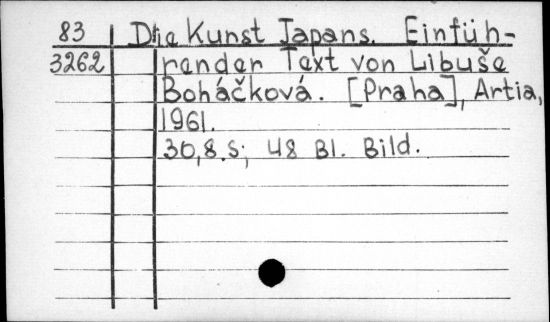 83 Die Kunst Japans. Einfüh-
3262 render Text von Libuše
Boháčková. [Praha], Artia,
1961.
30,8 S; 48 Bl. Bild.